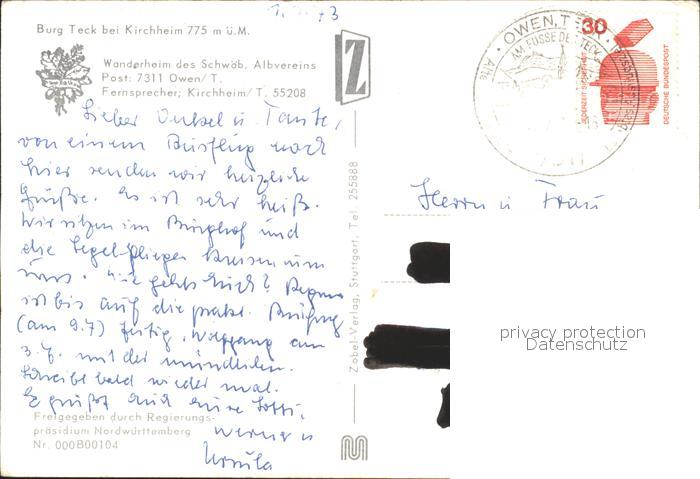 Burg Teck bei Kirchheim 775 m ü.M.
Wanderheim des Schwäb. Albvereins
Post: 7311 Owen/T.
Fernsprecher; Kirchheim/T. 55208
Lieber Onkel u. Tante,
von einem Ausflug nach
hier senden wir herzliche
Grüße. Es ist sehr heiß.
Wir sitzen im Burghof und
die Segelflieger kreisen um
uns. Wie gehts Euch?
ist bis auf die prakt. Prüfung
(am 9.7) fertig, Wolfgang am
3.7. mit der mündlichen.
Schreibt bald wieder mal.
Es grüßt Euch Eure Lotti,
Werner u
Ursula
Freigegeben durch Regierungs-
präsidium Nordwürttemberg
Nr. 000B00104
Zobel-Verlag, Stuttgart, Tel. 255888
Z
OWEN, TECK
AM FUSSE DER TECK
Alte
30
JEDERZEIT SICHERHEIT
DEUTSCHE BUNDESPOST
Herrn u Frau
privacy protection
Datenschutz